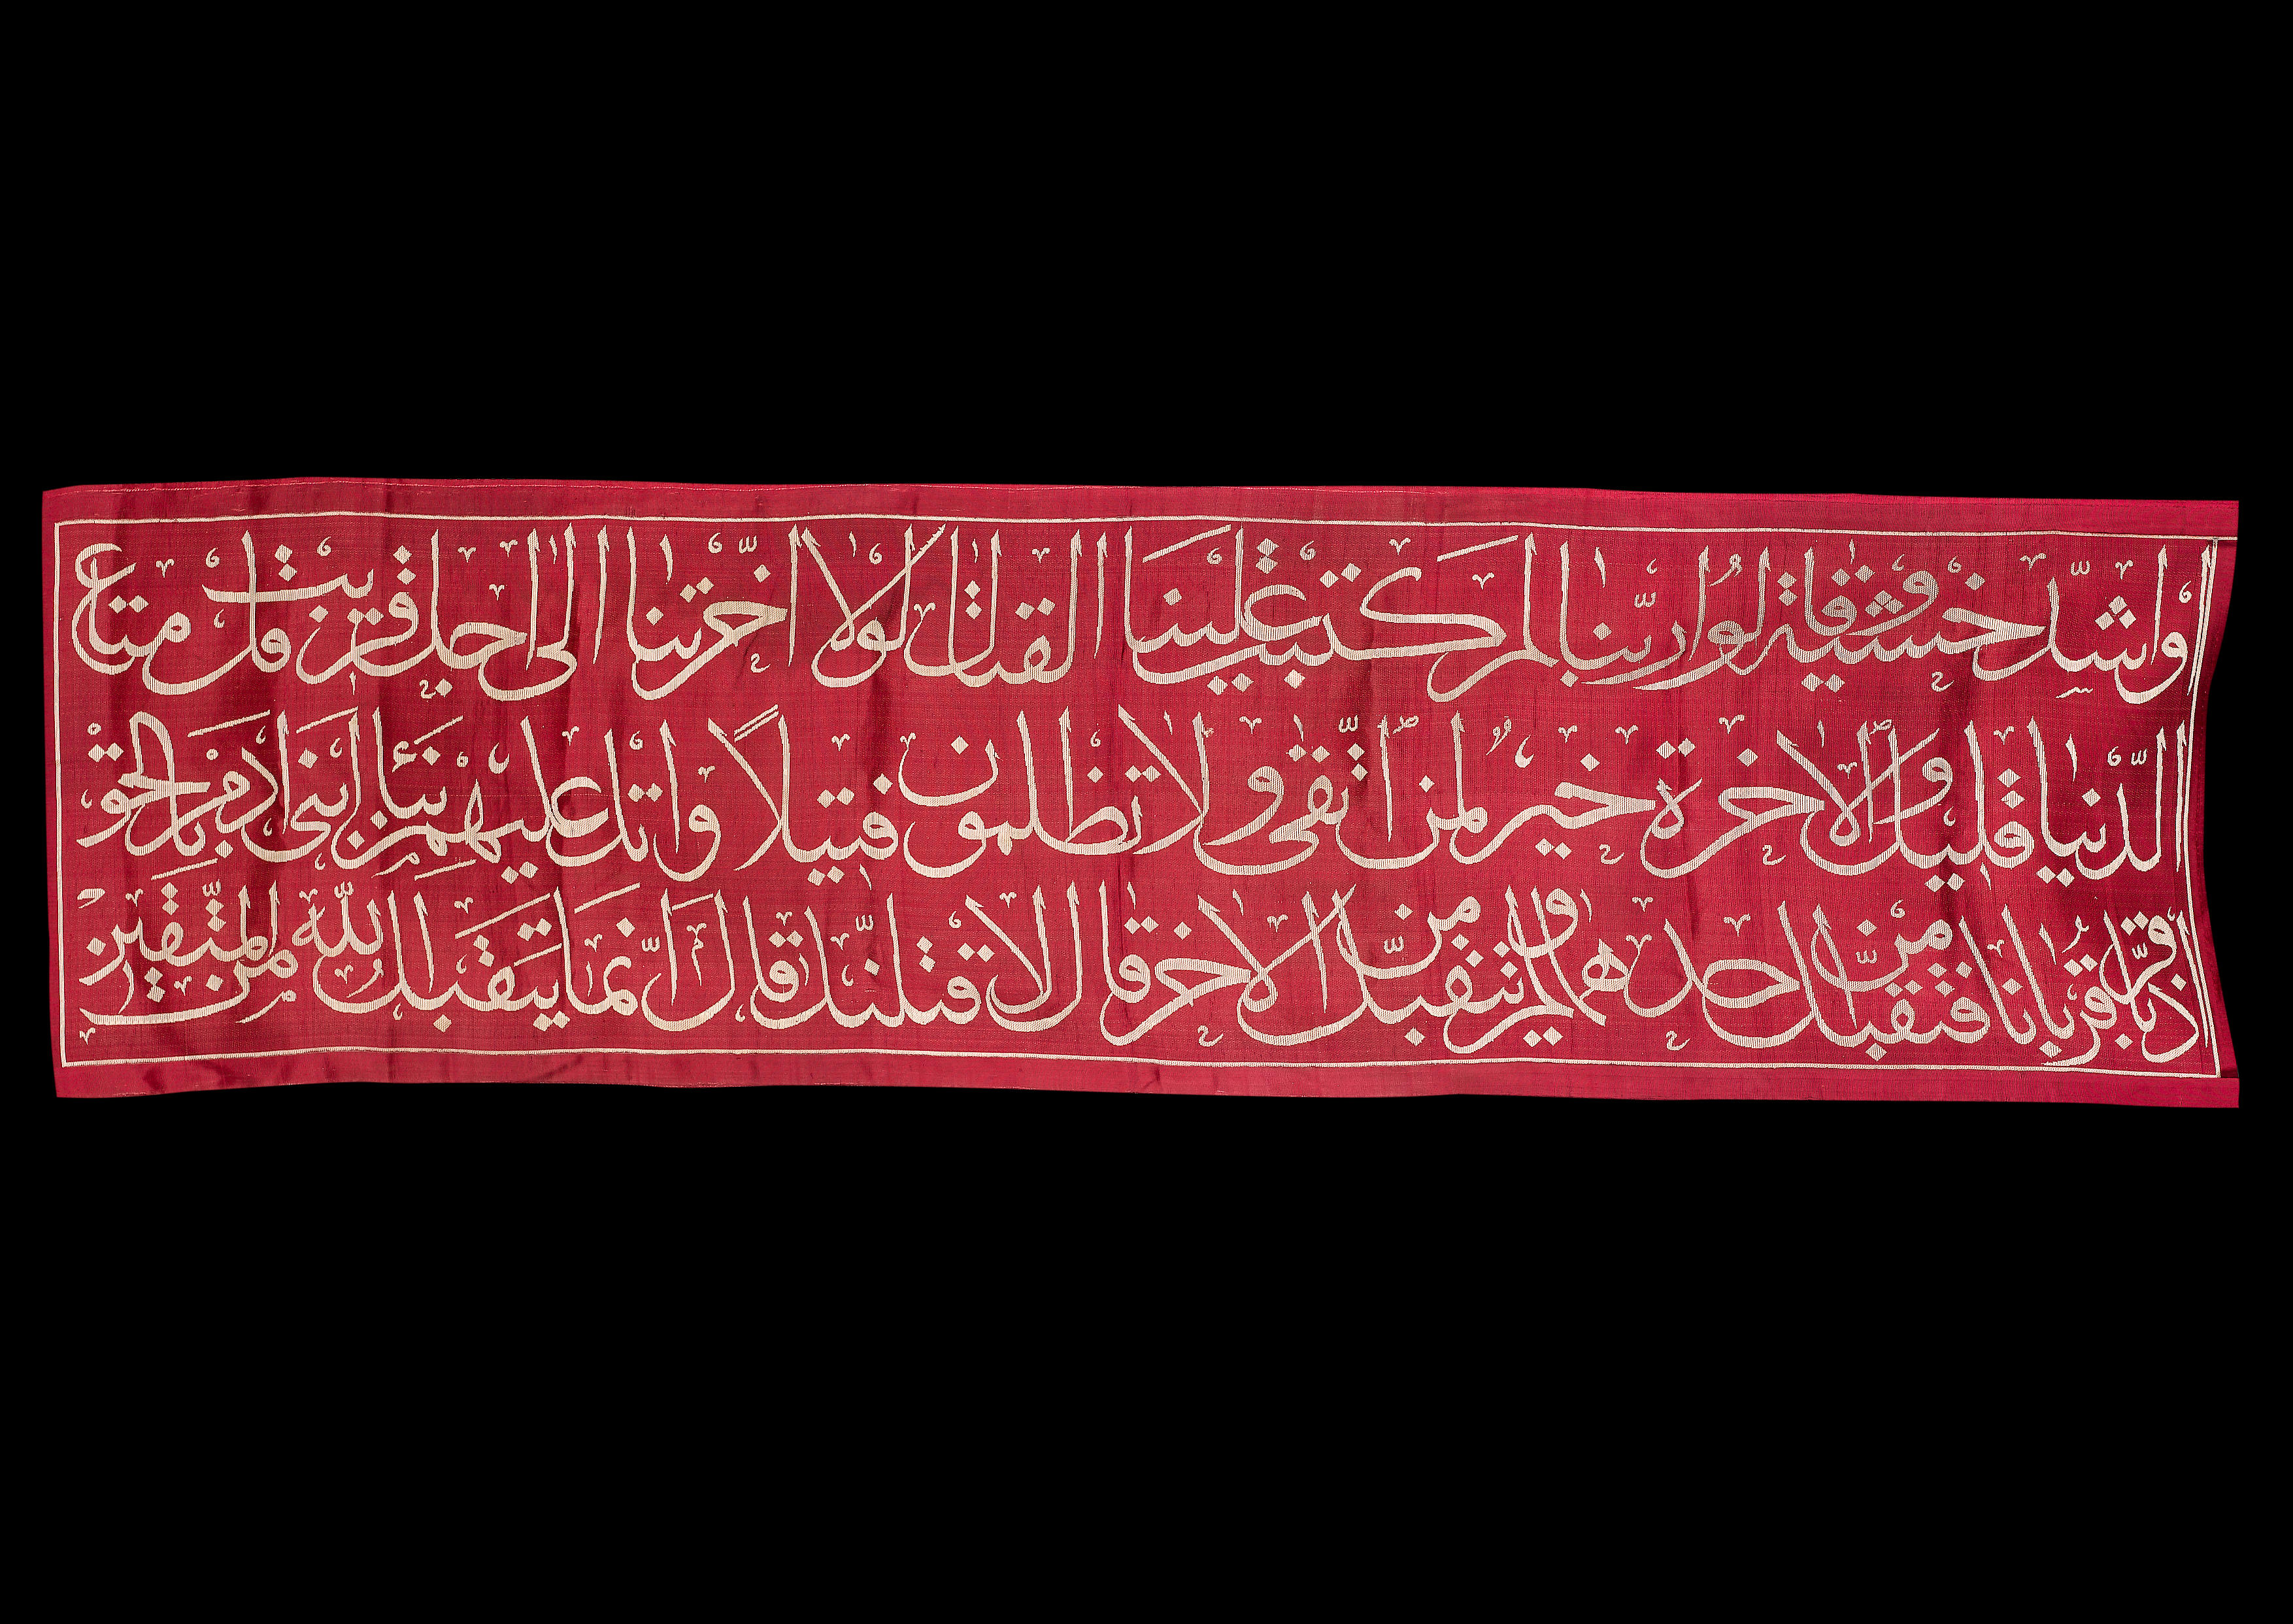 او اشدّ خشية وقالوا ربّنا لم كتبت علينا القتال لولا اخّرتنا الى اجل قريب قل متاع
الدّنيا قليل والاخرة خير لمن اتّقى ولا تظلمون فتيلاً واتل عليهم نبأ ابنى ادم بالحق
اذ قرّبا قربانا فتقبل من احدهما ولم يتقبل من الاخر قال لاقتلنّك قال انّما يتقبل الله من المتّقين